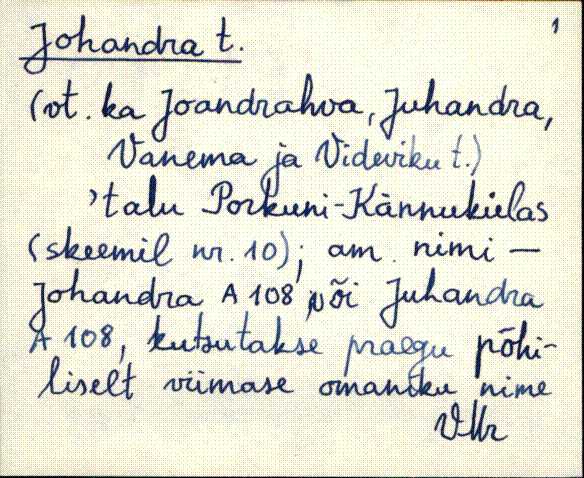 1
Johandra t.
(vt. ka Joandrahva, Juhandra,
Vanema ja Videviku t.)
'talu Porkuni-Kännukülas
(skeemil nr. 10); am. nimi —
Johandra A 108 või Juhandra
A 108, kutsutakse praegu põhi-
liselt viimase omaniku nime
VMr